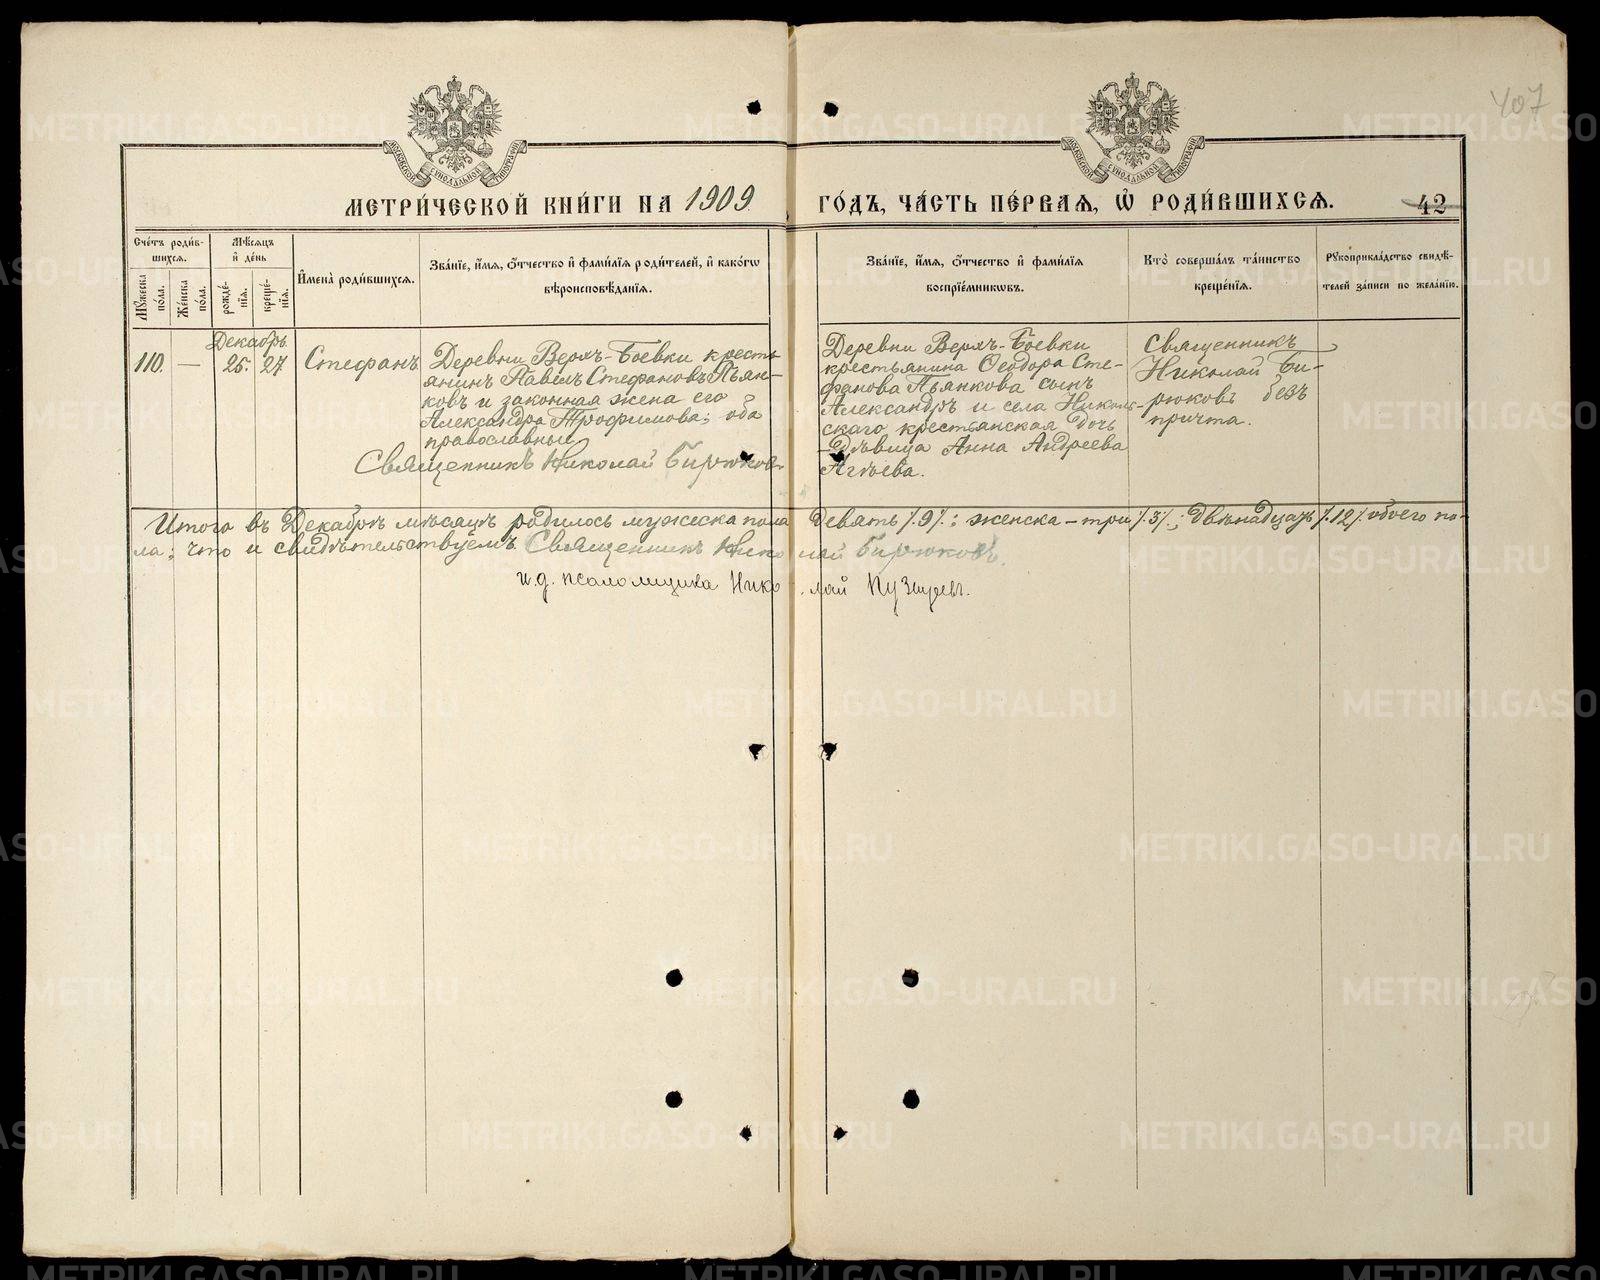 407
МЕТРИ́ЧЕСКОЙ КНИ́ГИ НА 1909 ГО́ДЪ, ЧА́СТЬ ПЕ́РВАЯ, Ѽ РОДИ́ВШИХСѦ. 42
Сче́тъ роди́в-
шихсѧ.
Мꙋ́жеска по́ла.
Же́нска по́ла.
Мѣ́сѧцъ
и҆ де́нь
рожде́-
нїѧ.
креще́-
нїѧ.
И҆мена̀ роди́вшихсѧ.
Зва́нїе, и҆́мѧ, ѻ҆́тчество и҆ фами́лїѧ роди́телей, и҆ како́гѡ
вѣроисповѣ́данїѧ.
Зва́нїе, и҆́мѧ, ѻ҆́тчество и҆ фами́лїѧ
воспрїе́мникѡвъ.
Кто̀ соверша́лъ та́инство
креще́нїѧ.
Рꙋкоприкла́дство свидѣ́-
телей за́писи по жела́нїю.
Декабрь
110. — 25. 27
Стефанъ
Деревни Верхъ-Боевки кресть-
янинъ Павелъ Стефановъ Пьян-
ковъ и законная жена его
Александра Трофимова; оба
православные
Священникъ Николай Бирюковъ
Деревни Верхъ-Боевки
крестьянина Ѳеодора Сте-
фанова Пьянкова сынъ
Александръ и села Николь-
скаго крестьянская дочь
дѣвица Анна Андреева
Агѣева.
Священникъ
Николай Би-
рюковъ безъ
причта.
Итого въ Декабрѣ мѣсяцѣ родилось мужеска пола девять /.9/.; женска – три /.3/.; двѣнадцать /.12/. обоего по-
ла; что и свидѣтельствуемъ. Священникъ Николай Бирюковъ.
и.д. псаломщика Николай Кузнецовъ.
METRIKI.GASO-URAL.RU